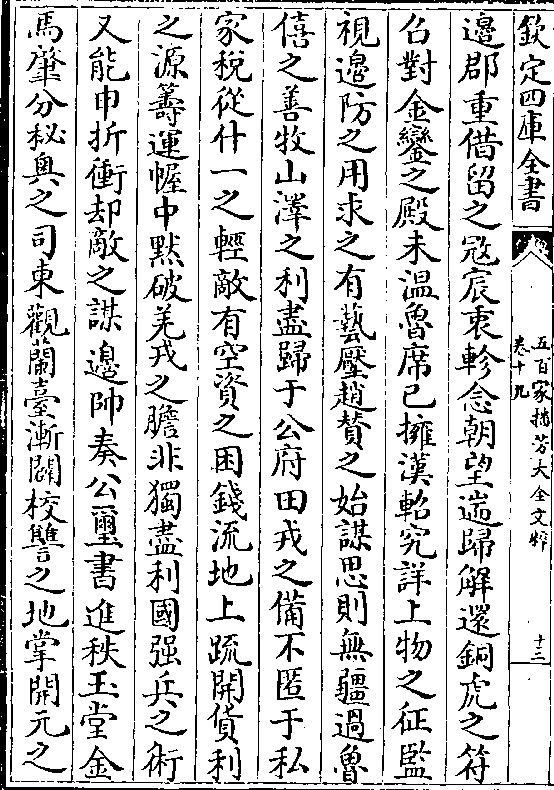 欽定四庫全書
五百家播芳大全文粹
卷十九
十三
邊郡重借留之冦宸衷軫念朝望遄歸解還銅虎之符
召對金鑾之殿未温魯席已擁漢軺究詳上物之征監
視邊防之用求之有藝壓趙賛之始謀思則無疆過魯
僖之善牧山澤之利盡歸于公府田戎之備不匿于私
家稅從什一之輕敵有空資之困錢流地上疏開貨利
之源籌運幄中默破羌戎之膽非獨盡利國强兵之術
又能申折衝却敵之謀邊帥奏公璽書進秩玉堂金
馬肇分秘奥之司東觀蘭臺漸闢校讐之地掌開元之